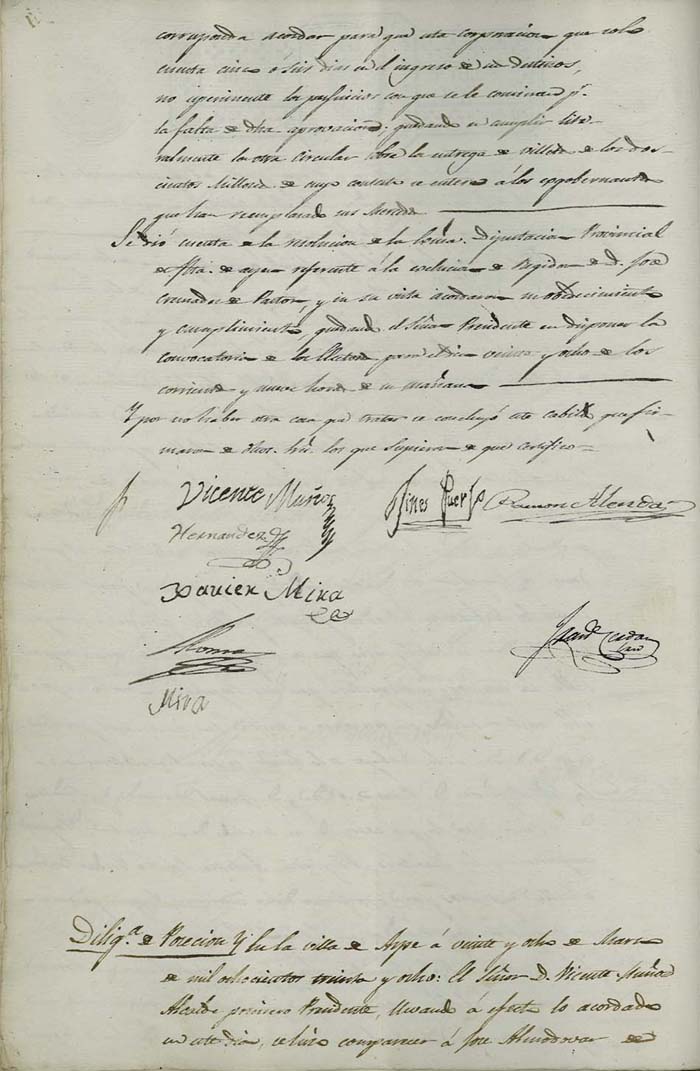 corresponda acordar para que esta corporacion que solo
cuenta cinco ó seis dias en el ingreso de sus destinos,
no esperimente los perjuicios con que se le conminan pr.
la falta de dha. aprovacion: quedando en cumplir lite-
ralmente la otra Circular sobre la entrega de de los dos-
cientos de cuyo contesto se entere á los
que han reemplazado sus
Se dió cuenta de la resolucion de la Exma. Diputacion Provincial
de fha. de ayer referente á la esclusion de Regidor de D. José
de Pastor, y en su vista acordaron su obedecimiento
y cumplimiento, quedando el Señor Presidente en disponer la
Convocatoria de los Electores para el dia veinte y ocho de los
corrientes y nueve horas de su mañana
Y por no haber otra cosa que tratar se concluyó este cabildo que fir-
maron de dhos. Sres. los que supieron de que certifico
Vicente Muñoz
Hernandez
Gines Puerto
Ramon Alenda
Xavier Mira
Mira
Diliga. de Posecion En la villa de Aspe á veinte y ocho de Marzo
de mil ochocientos treinta y ocho: El Señor D. Vicente Muñoz
Alcalde primero Presidente, llevando á efecto lo acordado
en este dia, se hizo comparecer á José Almodovar de